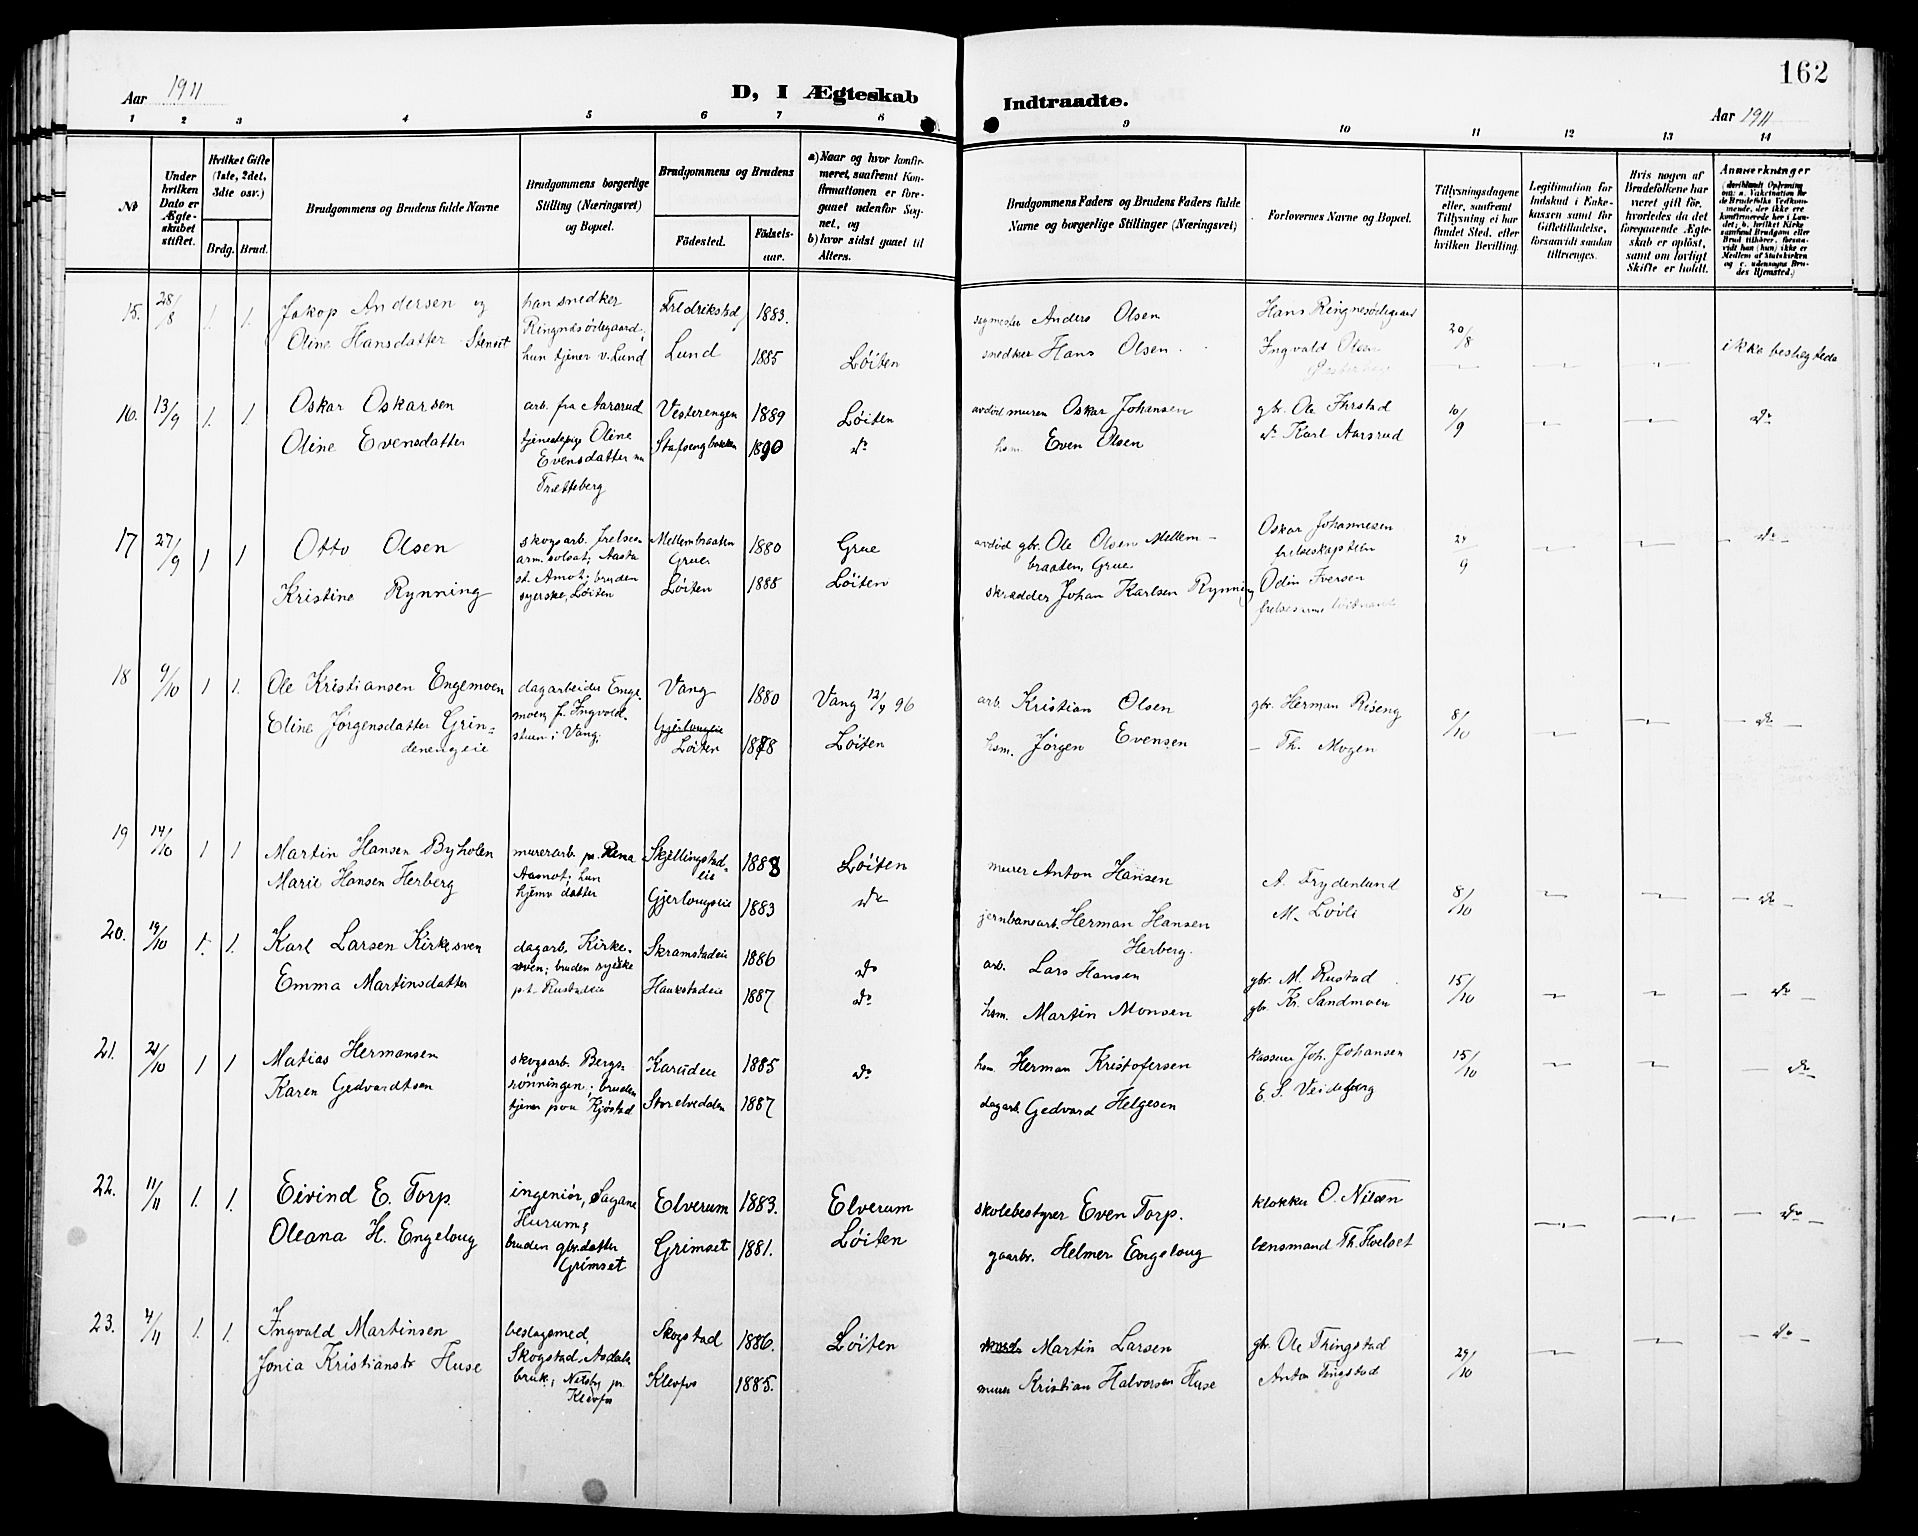 162
Aar 1911
D, I Ægteskab Indtraadte.
Aar 1911
1 2 3 4 5 6 7 8 9 10 11 12 13 14
Nr.
Under hvilken Dato er Ægteskabet stiftet.
Hvilket Gifte (1ste, 2det, 3dte osv.)
Brdg. Brud.
Brudgommens og Brudens fulde Navne
Brudgommens borgerlige Stilling (Næringsvei) og Bopæl.
Brudgommens og Brudens
Fødested. Fødselsaar.
a) Naar og hvor konfirmeret, saafremt Konfirmationen er foregaaet udenfor Sognet, og
b) hvor sidst gaaet til Alters.
Brudgommens Faders og Brudens Faders fulde Navne og borgerlige Stillinger (Næringsvei)
Forlovernes Navne og Bopæl.
Tillysningsdagene eller, saafremt Tillysning ei har fundet Sted, efter hvilken Bevilling.
Legitimation for Indskud i Enkekassen samt for Giftetilladelse, forsaavidt saadan tiltrænges.
Hvis nogen af Brudefolkene har været gift før, hvorledes da det foregaaende Ægteskab er opløst, samt om lovligt Skifte er holdt.
Anmerkninger
15. 28/8 1. 1. Jakop Andersen og han snedker Fredrikstad 1883. Anders Olsen Hans Ringnesødegaard 20/8
Oline Hansdatter Stenset Ringnesødegaard, hun tjener v. Lund Lund 1885 Løiten snedker Hans Olsen Ingvald Olsen ikke beslegtede
16. 13/9 1. 1. Oskar Oskarsen arb. fra Aarsrud Vesterengen 1889 Løiten avdød murer Oskar Johansen gbr. Ole 10/9 do
Oline Evensdatter tjenestepige Oline Evensdatter Trætteberg 1890 do hsm. Even Olsen do Karl Aarsrud
17 27/9 1 1 Otto Olsen skogsarb. frelses- arm. solsat; Aasta st. Amot; bruden syerske, Løiten Mellembraaten Grue 1880 Grue avdød gbr. Ole Olsen Mellem- braaten, Grue Oskar Johannesen 24/9 do
Kristine Rynning Løiten 1888 Løiten skrædder Johan Karlsen Rynning Odin Iversen
18 9/10 1 1. Ole Kristiansen Engemoen dagarbeider Enge- moen, f. Ingvold- stuen i Vang; Vang 1880 Vang 12/4 96 arb. Kristian Olsen gbr. Herman Riseng 8/10 do
Eline Jørgensdatter Grin- denengeie Gjerlougeie Løiten 1878 Løiten hsm. Jørgen Evensen — Th. Mogen
19 14/10 1 1 Martin Hansen Byholen murerarb. pr. Rena Aamot; hun hjemv. datter Skjellingstad- eie 1888 Løiten murer Anton Hansen A. Frydenlund 8/10 do
Marie Hansen Herberg Gjerlougseie 1883 do jernbanearb. Herman Hansen Herberg. M. Løvli
20. 19/10 1. 1. Karl Larsen Kirkesven dagarb. Kirke- sven; bruden syerske p.t. Rustadeie Skramstadeie 1886 do arb. Lars Hansen gbr. M. Rustad 15/10 do
Emma Martinsdatter Haukstadeie 1887 do hsm. Martin Monsen gbr. Kr. Sandmoen
21. 21/10 1 1 Matias Hermansen skogsarb. Bergs- rønningen; bruden tjener paa Kjøstad Karudeie 1885 do hsm. Herman Kristofersen kasserer Joh. Johansen 15/10 do
Karen Gedvardtsen Storelvedalen 1887 dagarb. Gedvard Helgesen E. S. Veideberg
22. 11/11 1. 1. Eivind E. Torp. ingeniør, Sagane Hurum; Elverum 1883. Elverum skolebestyrer Even Torp. klokker O. Nilsen do
Oleana H. Engeloug bruden gbr.datter Grimset Grimset 1881. Løiten gaarbr. Helmer Engeloug lensmand Th. Hoelset
23. 4/11 1. 1. Ingvald Martinsen beslagsmed, Skogstad, Aadals bruk; Næsby pr. Klevfos Skogstad 1886. Løiten Martin Larsen gbr. Ole Thingstad 29/10 do
Jonia Kristiansdr Huse Klevfos 1885. murer Kristian Halvorsen Huse Anton Tingstad